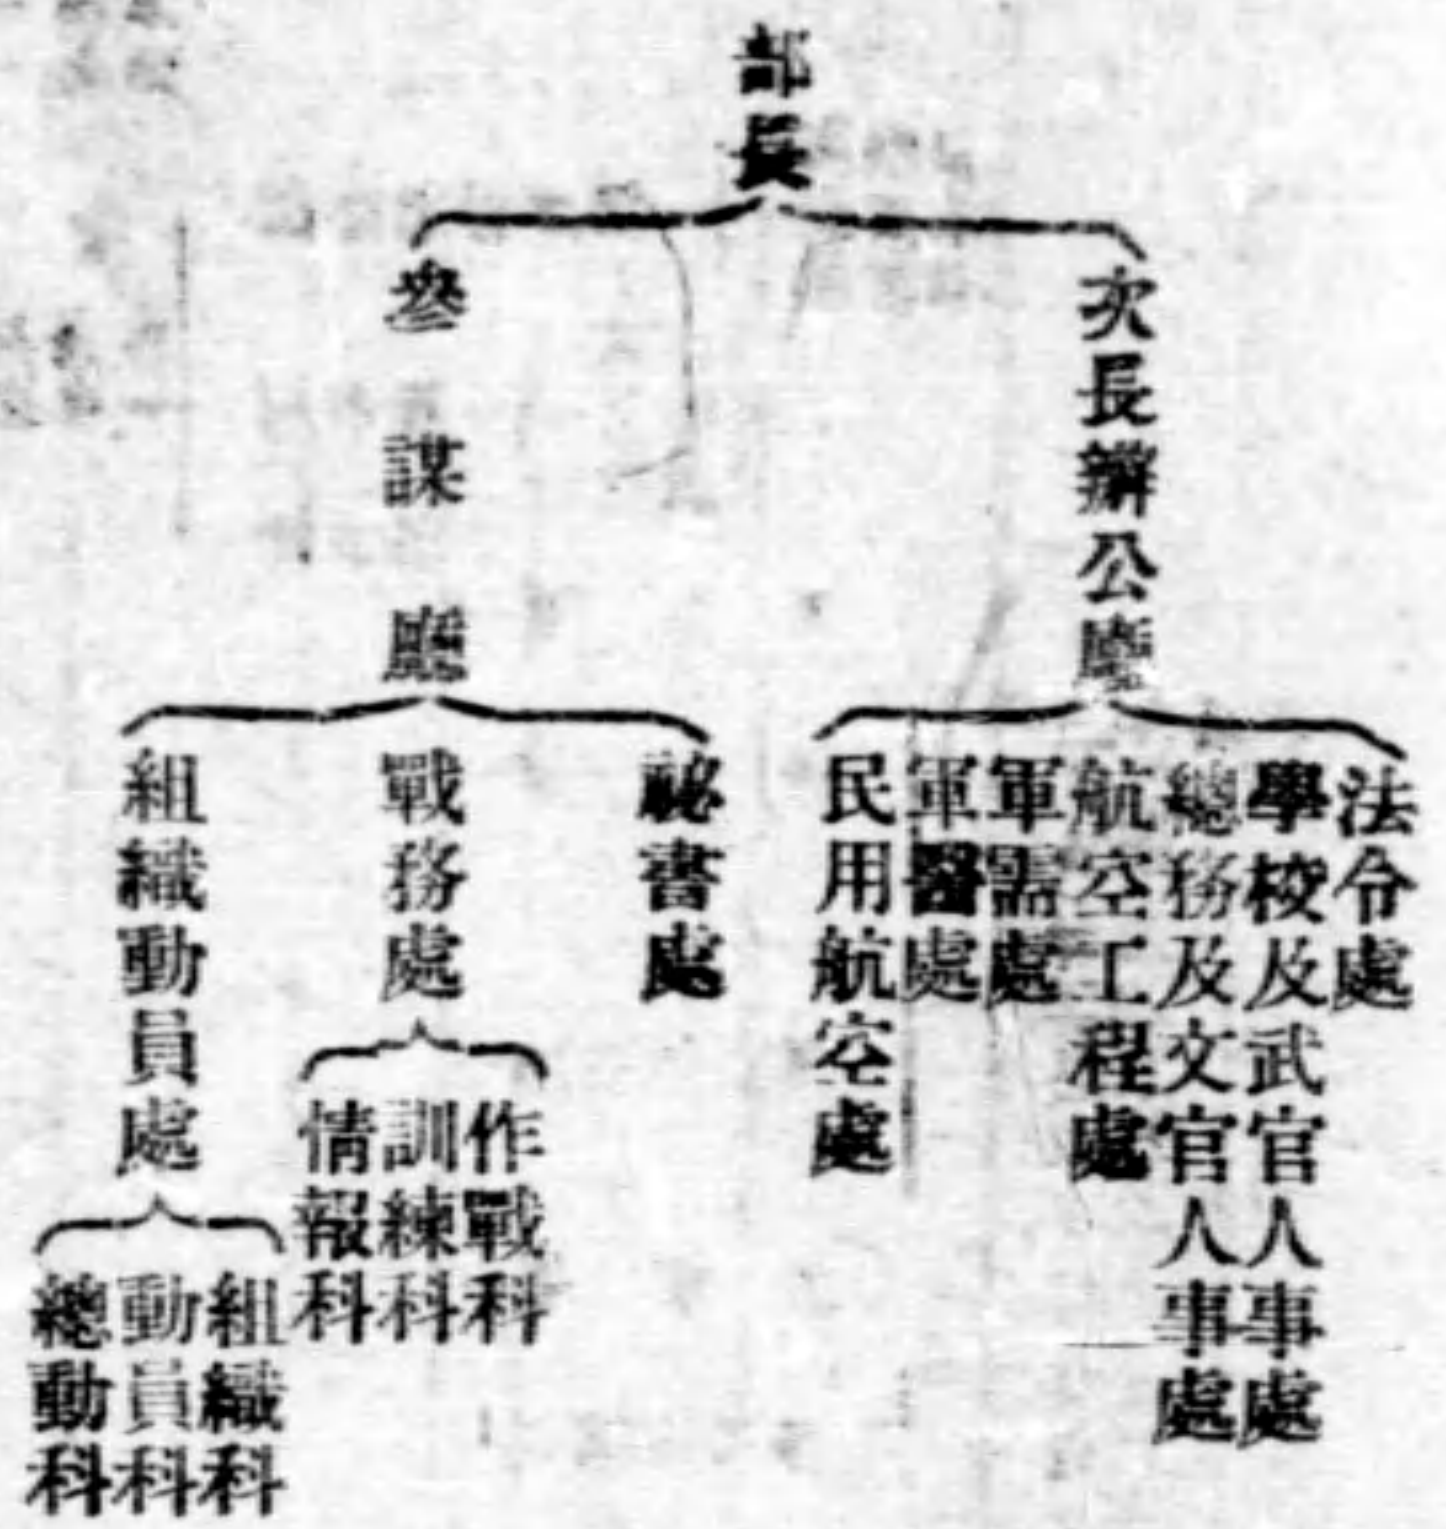 部長
次長辦公廳
法令處
學校及武官人事處
總務及文官人事處
航空工程處
軍需處
軍醫處
民用航空處
參謀廳
秘書處
戰務處
作戰科
訓練科
情報科
組織動員處
組織科
動員科
總動科